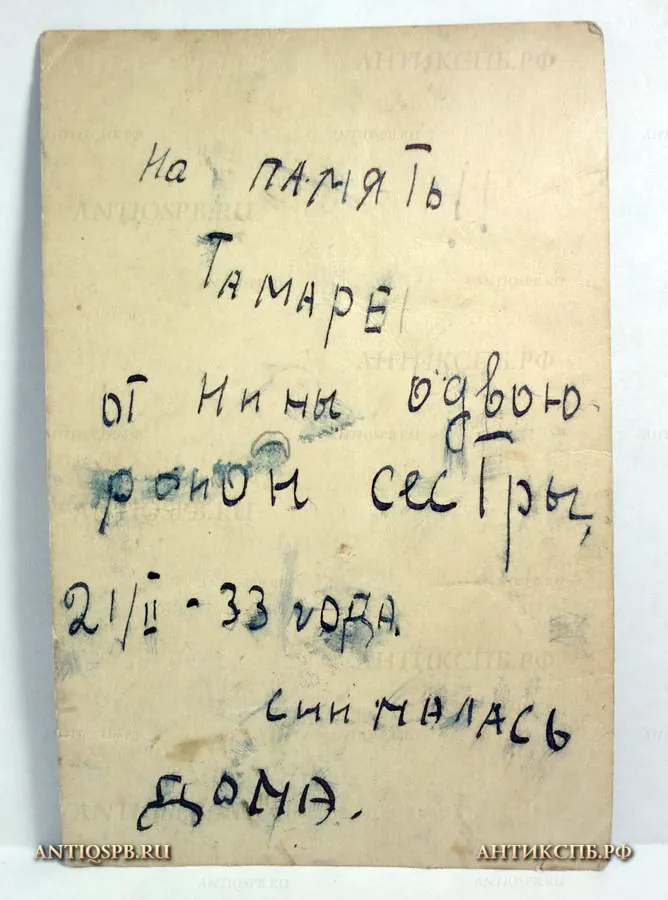 На ПАМЯТЬ!!
ТАМАРЕ!
от Нины одвою
роной сестры,
21/II - 33 года.
снималась
ДОМА.
ANTIQSPB.RU
АНТИКСПБ.РФ